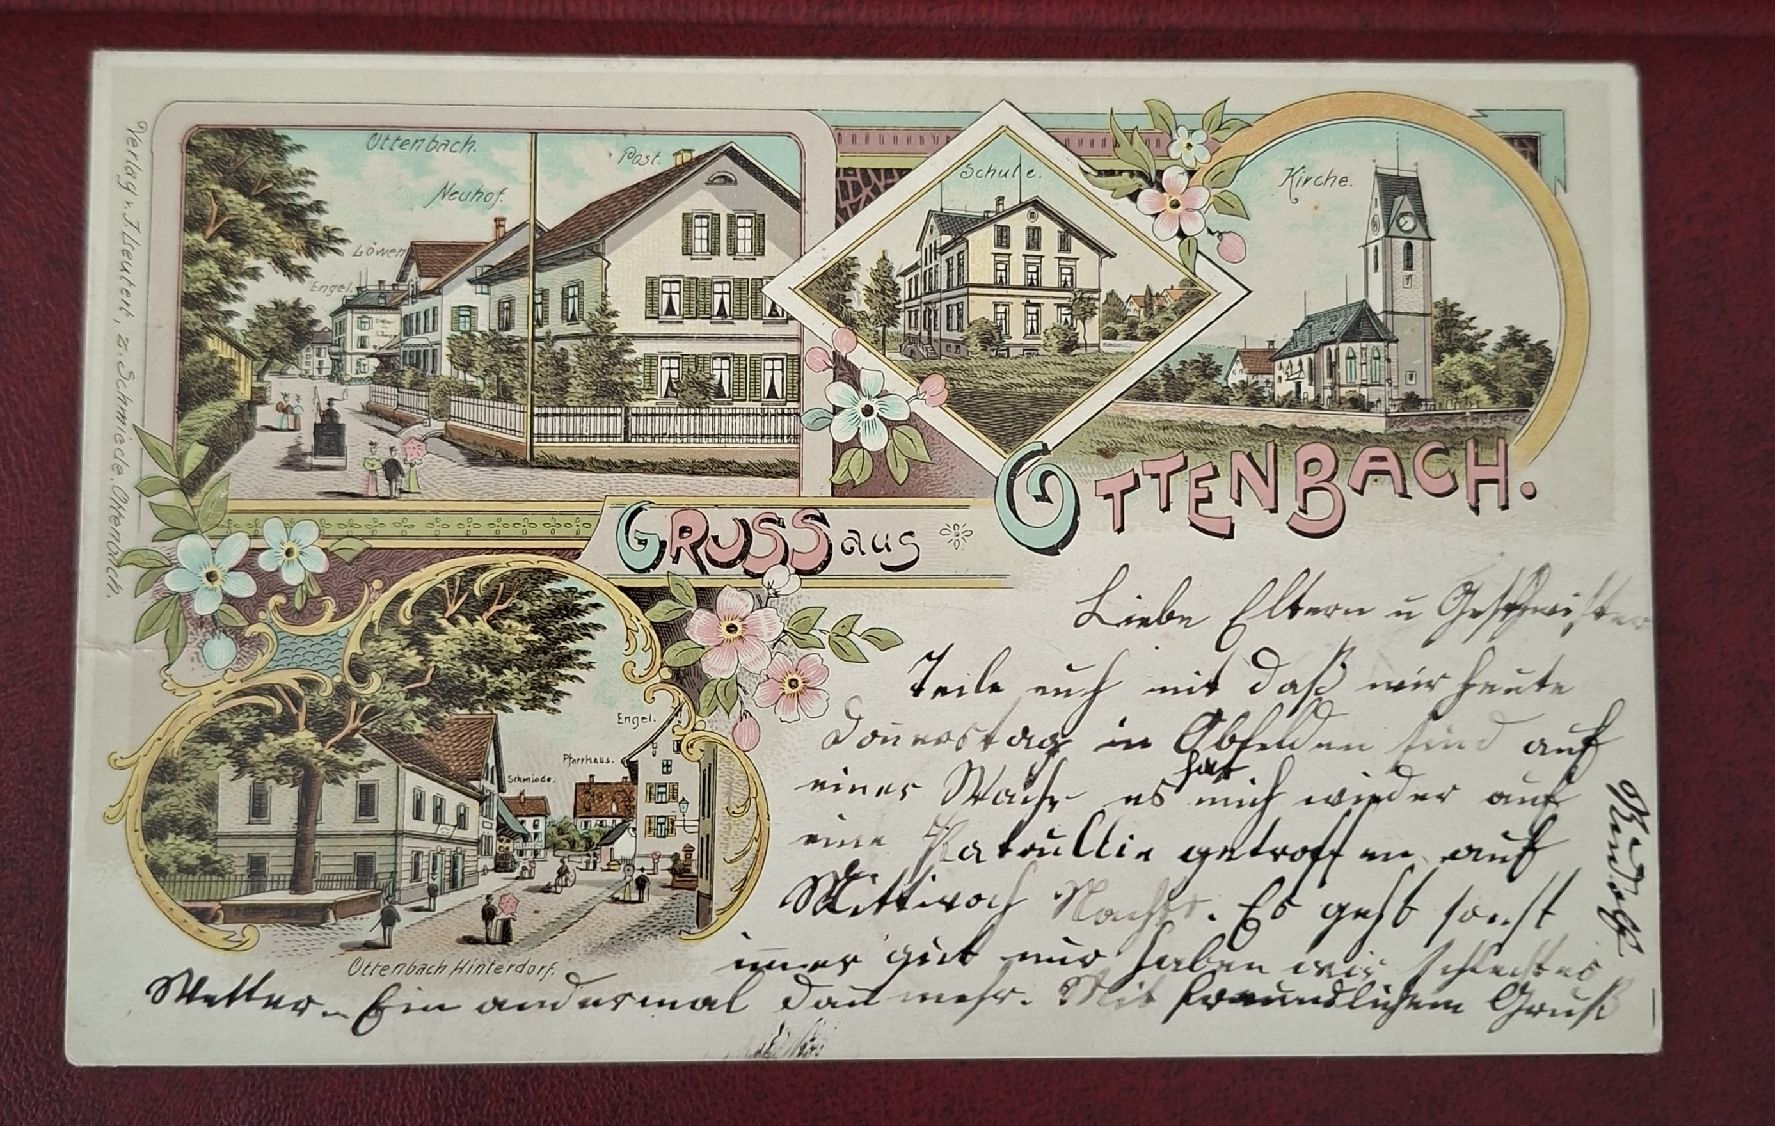 Verlag v. J. Leutert, z. Schmiede. Ottenbach.
Ottenbach.
Neuhof.
Post.
Löwen
Engel.
Schule.
Kirche.
GRUSS aus OTTENBACH.
Engel.
Pfarrhaus.
Schmiede.
Ottenbach Hinterdorf.
Liebe Eltern u Geschwister
Teile euch mit daß wir heute
Donnerstag in Obfelden sind auf
einer Wache es hat mich wieder auf
eine Patrullie getroffen auf
Mittwoch Nacht. Es geht sonst
immer gut nur haben wir schlechtes
Wetter. Ein andermal dan mehr. Mit freundlichem Gruß